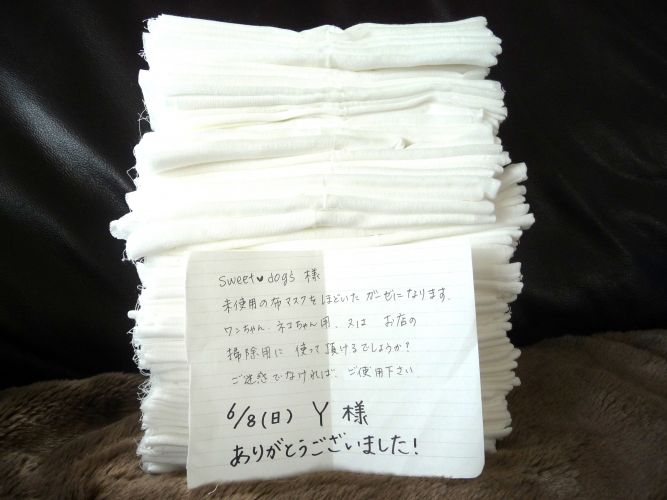 sweet♥dogs 様
未使用の布マスクをほどいた ガーゼになります。
ワンちゃん、ネコちゃん用、又は お店の
掃除用に 使って頂けるでしょうか?
ご迷惑でなければ、ご使用下さい
6/8(日) Y 様
ありがとうございました!